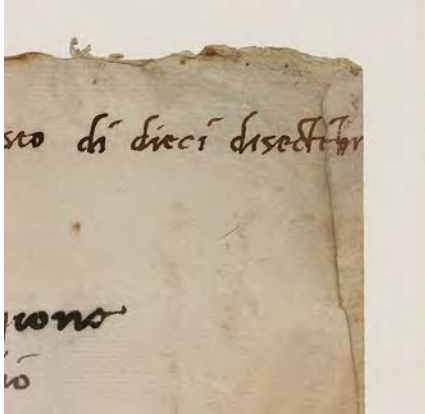 sto di dieci disectēbr
gione
iō